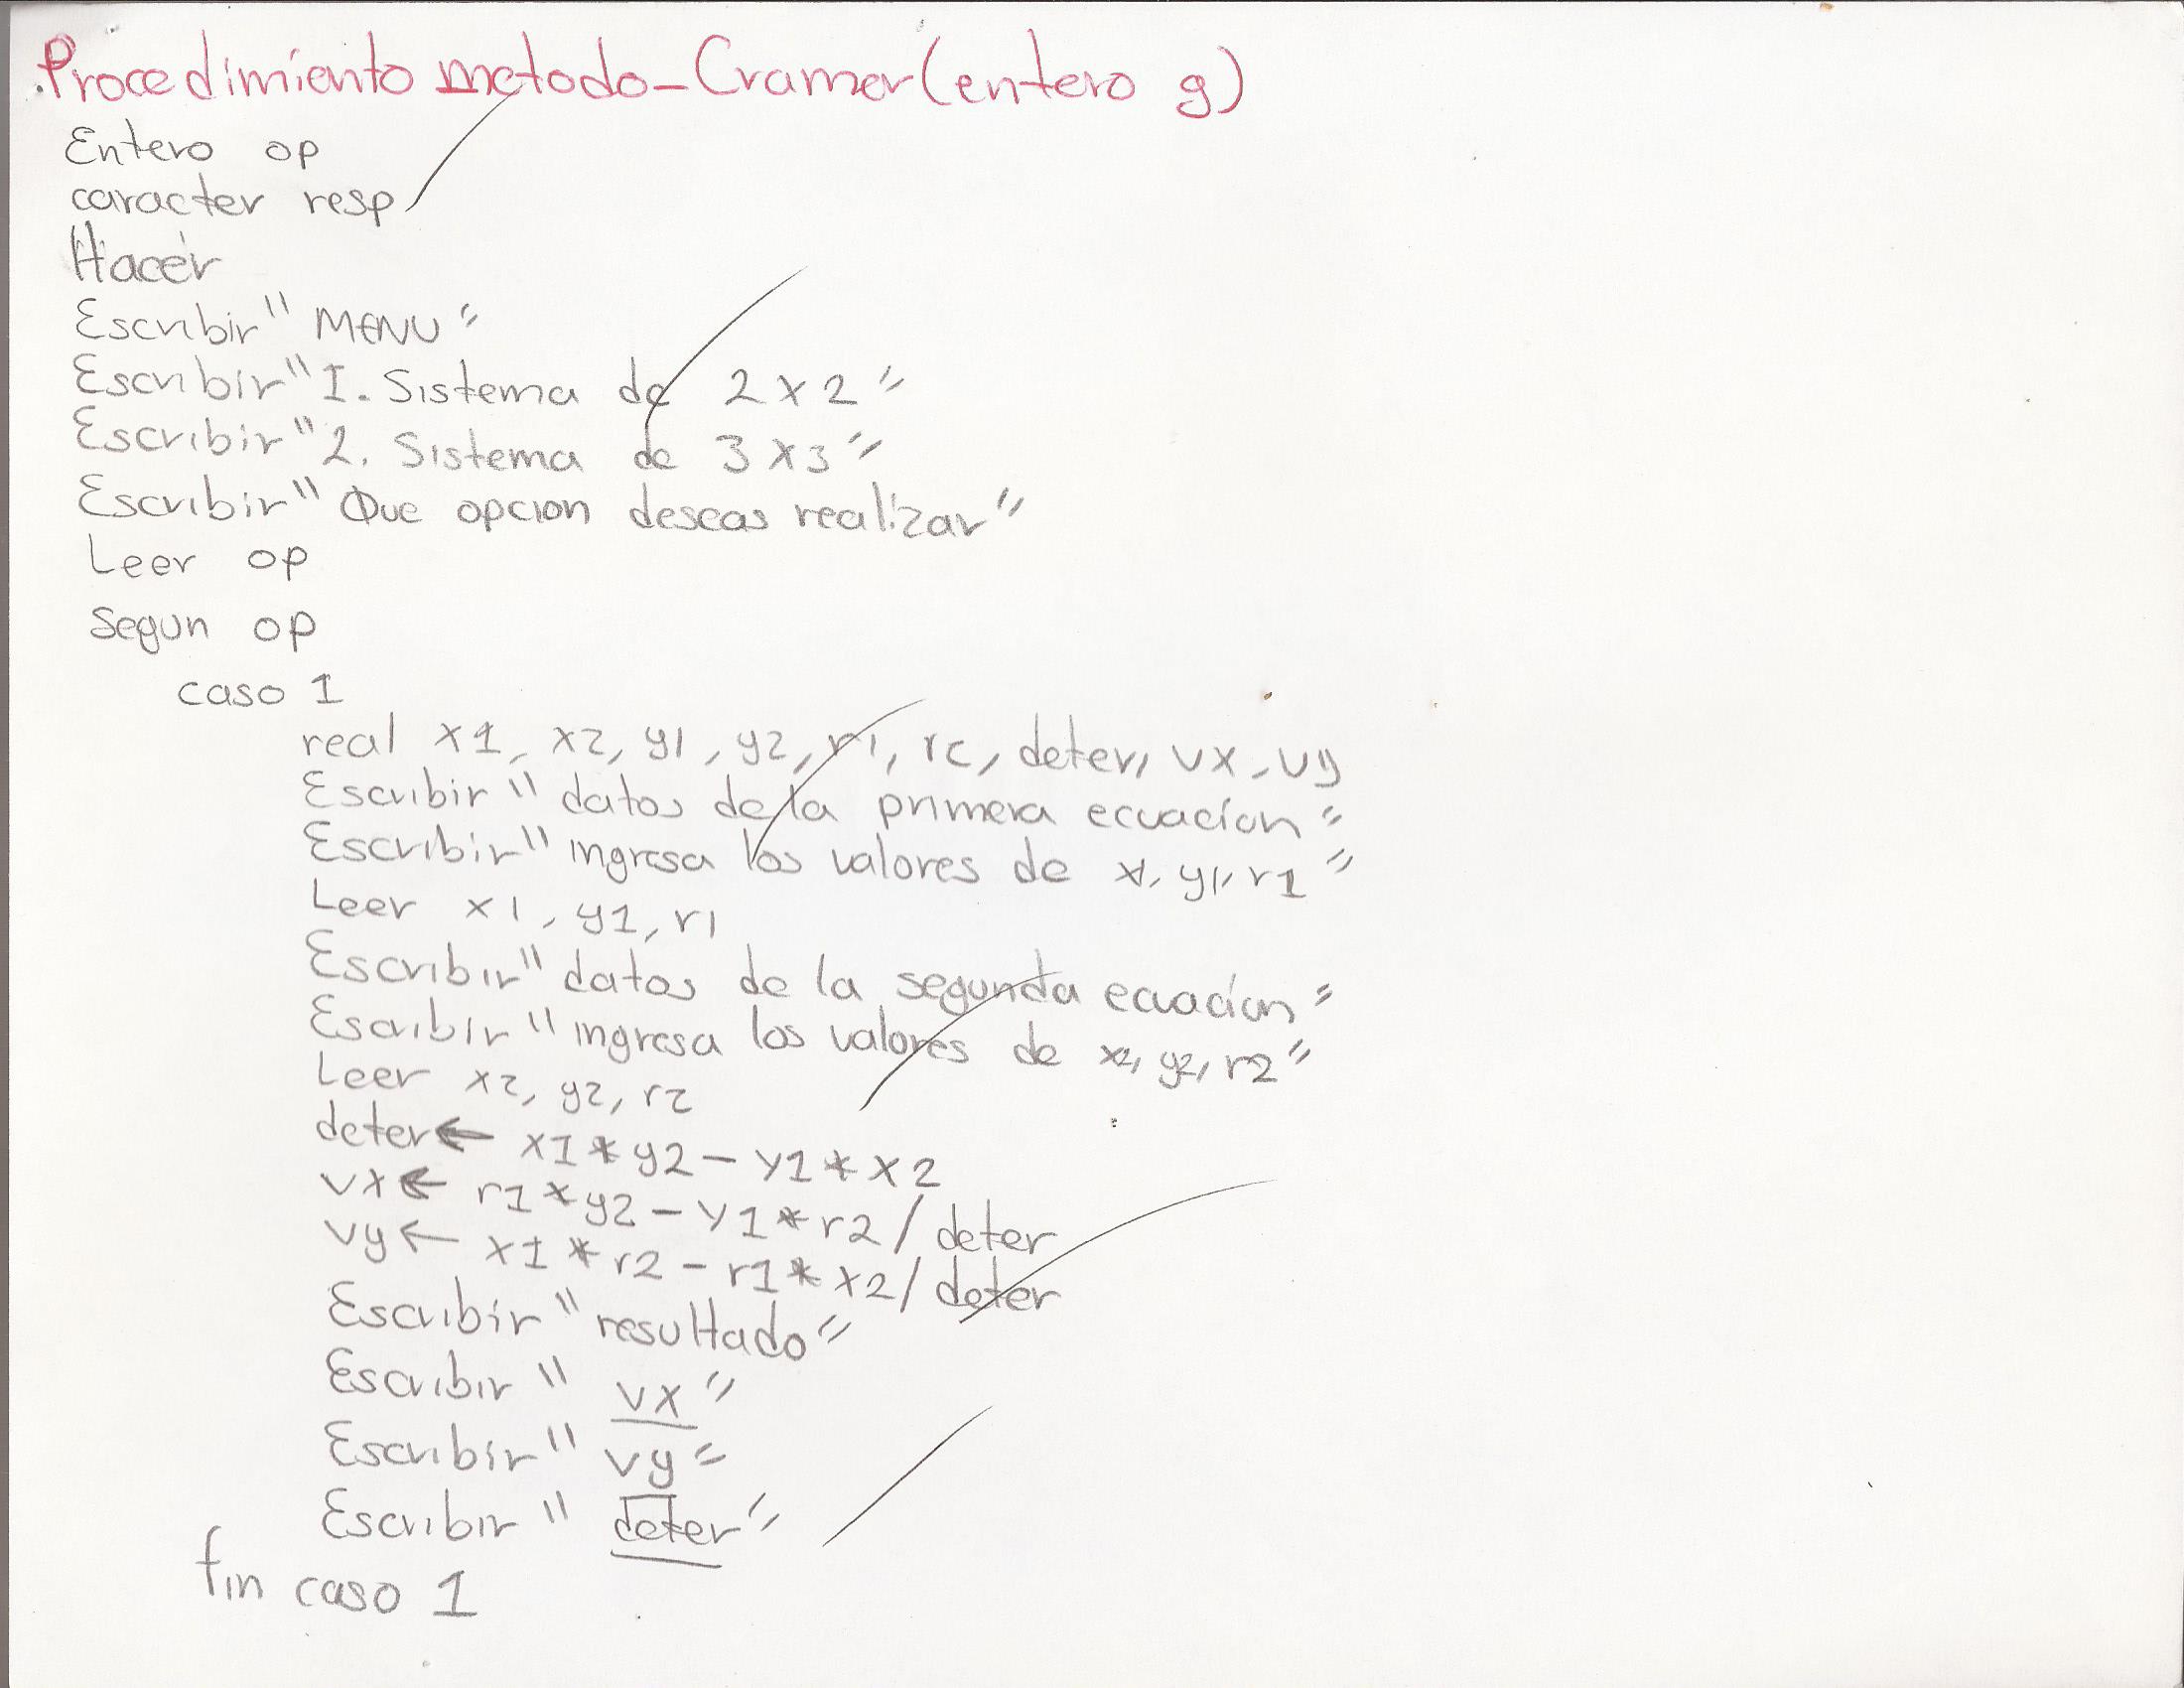 Procedimiento metodo_Cramer(entero g)
Entero op
caracter resp
Hacer
Escribir "MENU"
Escribir "1. Sistema de 2x2"
Escribir "2. Sistema de 3x3"
Escribir "Que opcion deseas realizar"
Leer op
Segun op
caso 1
real x1, x2, y1, y2, r1, rc, deter, vx, vy
Escribir "datos de la primera ecuacion"
Escribir "ingresa los valores de x1, y1, r1"
Leer x1, y1, r1
Escribir "datos de la segunda ecuacion"
Escribir "ingresa los valores de x2, y2, r2"
Leer x2, y2, r2
deter ← x1*y2-y1*x2
vx ← r1*y2-y1*r2/deter
vy ← x1*r2-r1*x2/deter
Escribir "resultado"
Escribir "vx"
Escribir "vy"
Escribir "deter"
fin caso 1